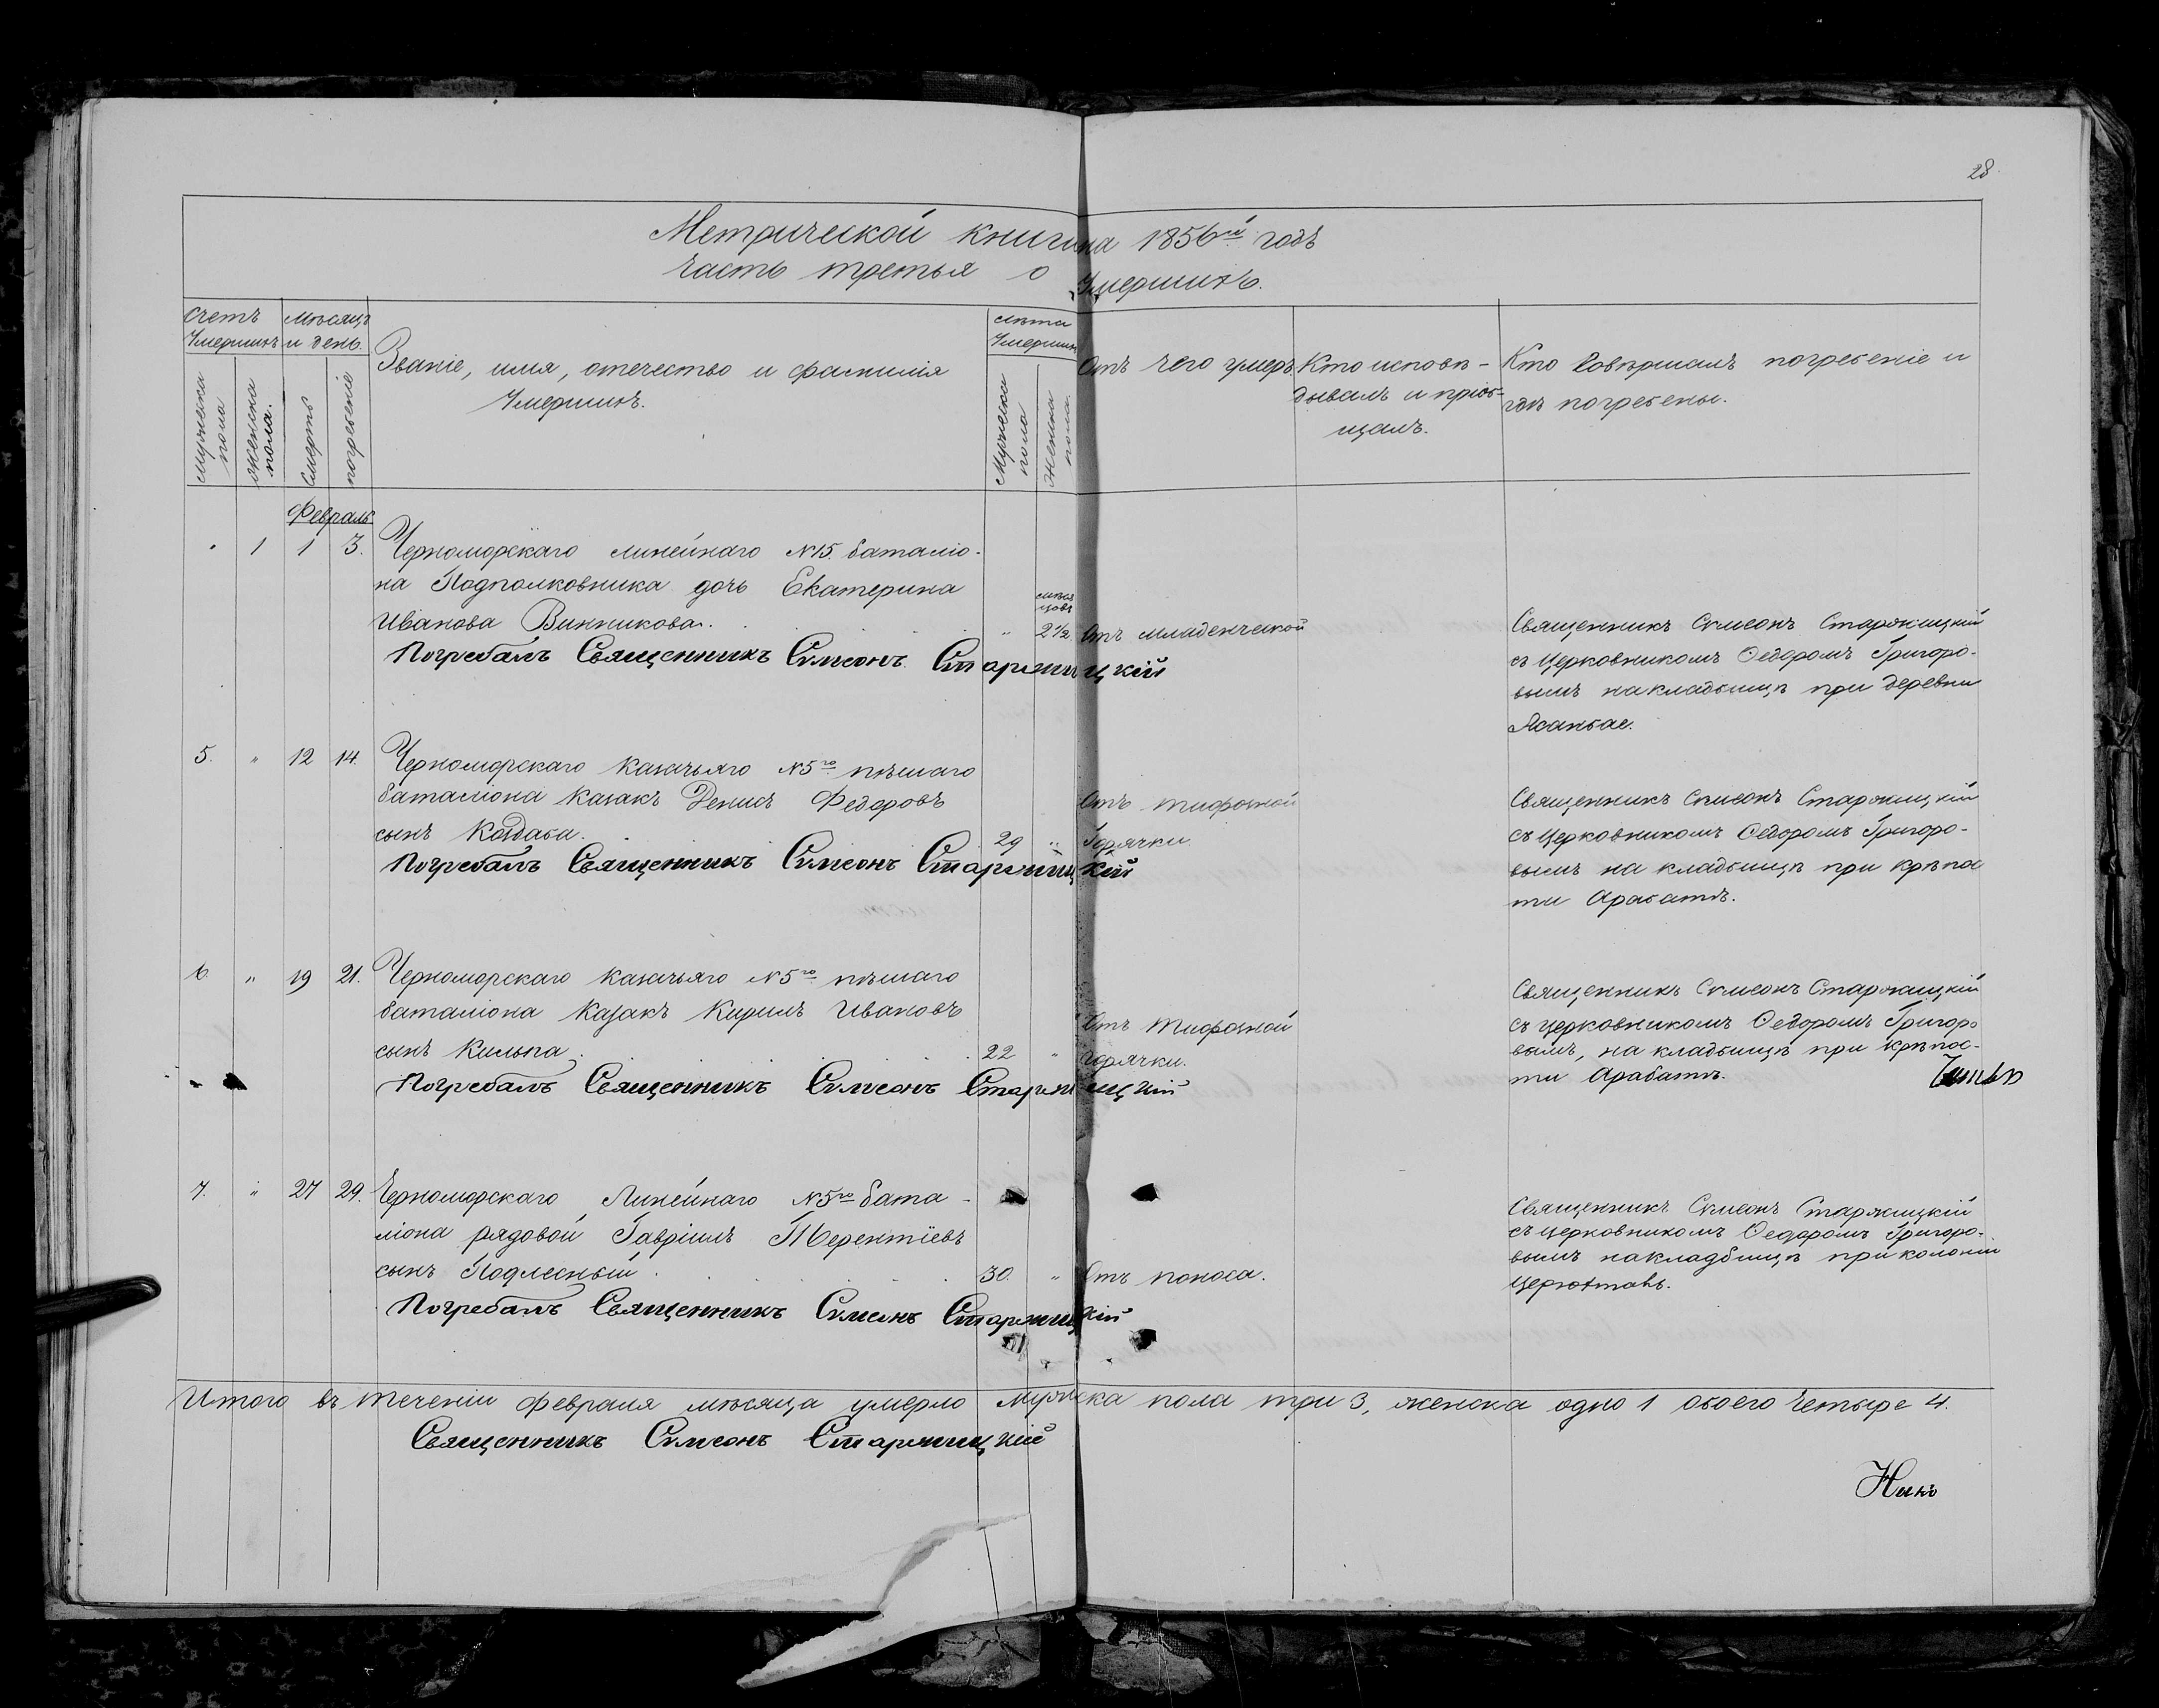 28
Метрической книги на 1856й годъ
часть третья о Умершихъ.
Счетъ Умершихъ
мужеска пола
женска пола.
Мѣсяцъ и день.
Смерть
погребеніе
Званіе, имя, отечество и фамилія
Умершихъ.
Лѣта Умершихъ
Мужеска пола
Женска пола
Отъ чего умеръ.
Кто исповѣ-
дывалъ и пріоб-
щалъ.
Кто Совершалъ погребеніе и
гдѣ погребены.
Февраль
" 1 1 3. Черноморскаго линейнаго №15. баталіо-
на Подполковника дочь Екатерина
Иванова Винникова. " мѣся цовъ 2½ Отъ младенческой
Погребалъ Священникъ Симеонъ Старжицкій
Священникъ Симеонъ Старжицкій
съ Церковникомъ Ѳедоромъ Григоро-
вымъ на кладбищѣ при деревни
5. " 12 14. Черноморскаго Казачьяго №5го пѣшаго
баталіона Казакъ Денисъ Федоровъ Отъ тифозной
сынъ 29 " Горячки
Погребалъ Священникъ Симеонъ Старжицкій
Священникъ Симеонъ Старжицкій
съ Церковникомъ Ѳедоромъ Григоро-
вымъ на кладбищѣ при крѣпос
ти Арабатѣ.
6. " 19 21. Черноморскаго Казачьяго №5го пѣшаго
баталіона Казакъ Кирилъ Ивановъ Отъ Тифозной
сынъ Кильпа. 22 " горячки.
Погребалъ Священникъ Симеонъ Старжицкій
Священникъ Симеонъ Старжицкій
съ церковникомъ Ѳедоромъ Григоро
вымъ, на кладбищѣ при крѣпос-
ти Арабатѣ.
7. " 27 29. Черноморскаго Линейнаго №5го бата-
ліона рядовой Гавріилъ Терентіевъ
сынъ Подлесный. 30. " Отъ поноса.
Погребалъ Священникъ Симеонъ Старжицкій
Священникъ Симеонъ Старжицкій
съ церковникомъ Ѳедоромъ Григоро-
вымъ на кладбищѣ при колоніи
Итого въ теченіи февраля мѣсяца умерло мужеска пола три 3, женска одно 1 обоего Четыре 4.
Священникъ Симеонъ Старжицкій